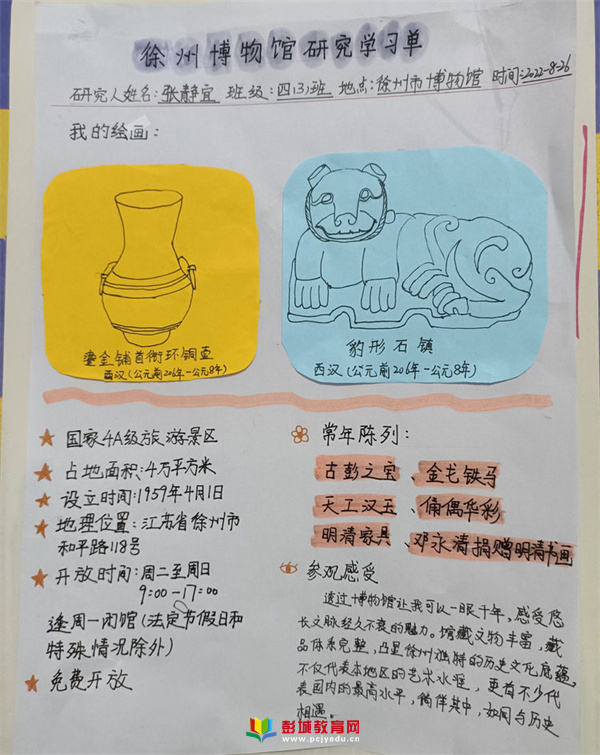 徐州博物馆研究学习单
研究人姓名:张静宜 班级:四(3)班 地点:徐州市博物馆 时间:2022-8-26
我的绘画:
鎏金铺首衔环铜壶
西汉(公元前206年-公元8年)
豹形石镇
西汉(公元前206年-公元8年)
国家4A级旅游景区
占地面积:4万平方米
设立时间:1959年4月1日
地理位置:江苏省徐州市
和平路118号
开放时间:周二至周日
9:00-17:00
逢周一闭馆(法定节假日和
特殊情况除外)
免费开放
常年陈列:
古彭之宝、金戈铁马
天工汉玉、俑偶华彩
明清家具、邓永清捐赠明清书画
参观感受
透过博物馆让我可以一眼千年,感受悠
长文脉经久不衰的魅力。馆藏文物丰富,藏
品体系完整,凸显徐州独特的历史文化底蕴。
不仅代表本地区的艺术水准,更有不少代
表国内的最高水平,徜徉其中,如同与历史
相遇。
彭城教育网
www.pcjyedu.cn